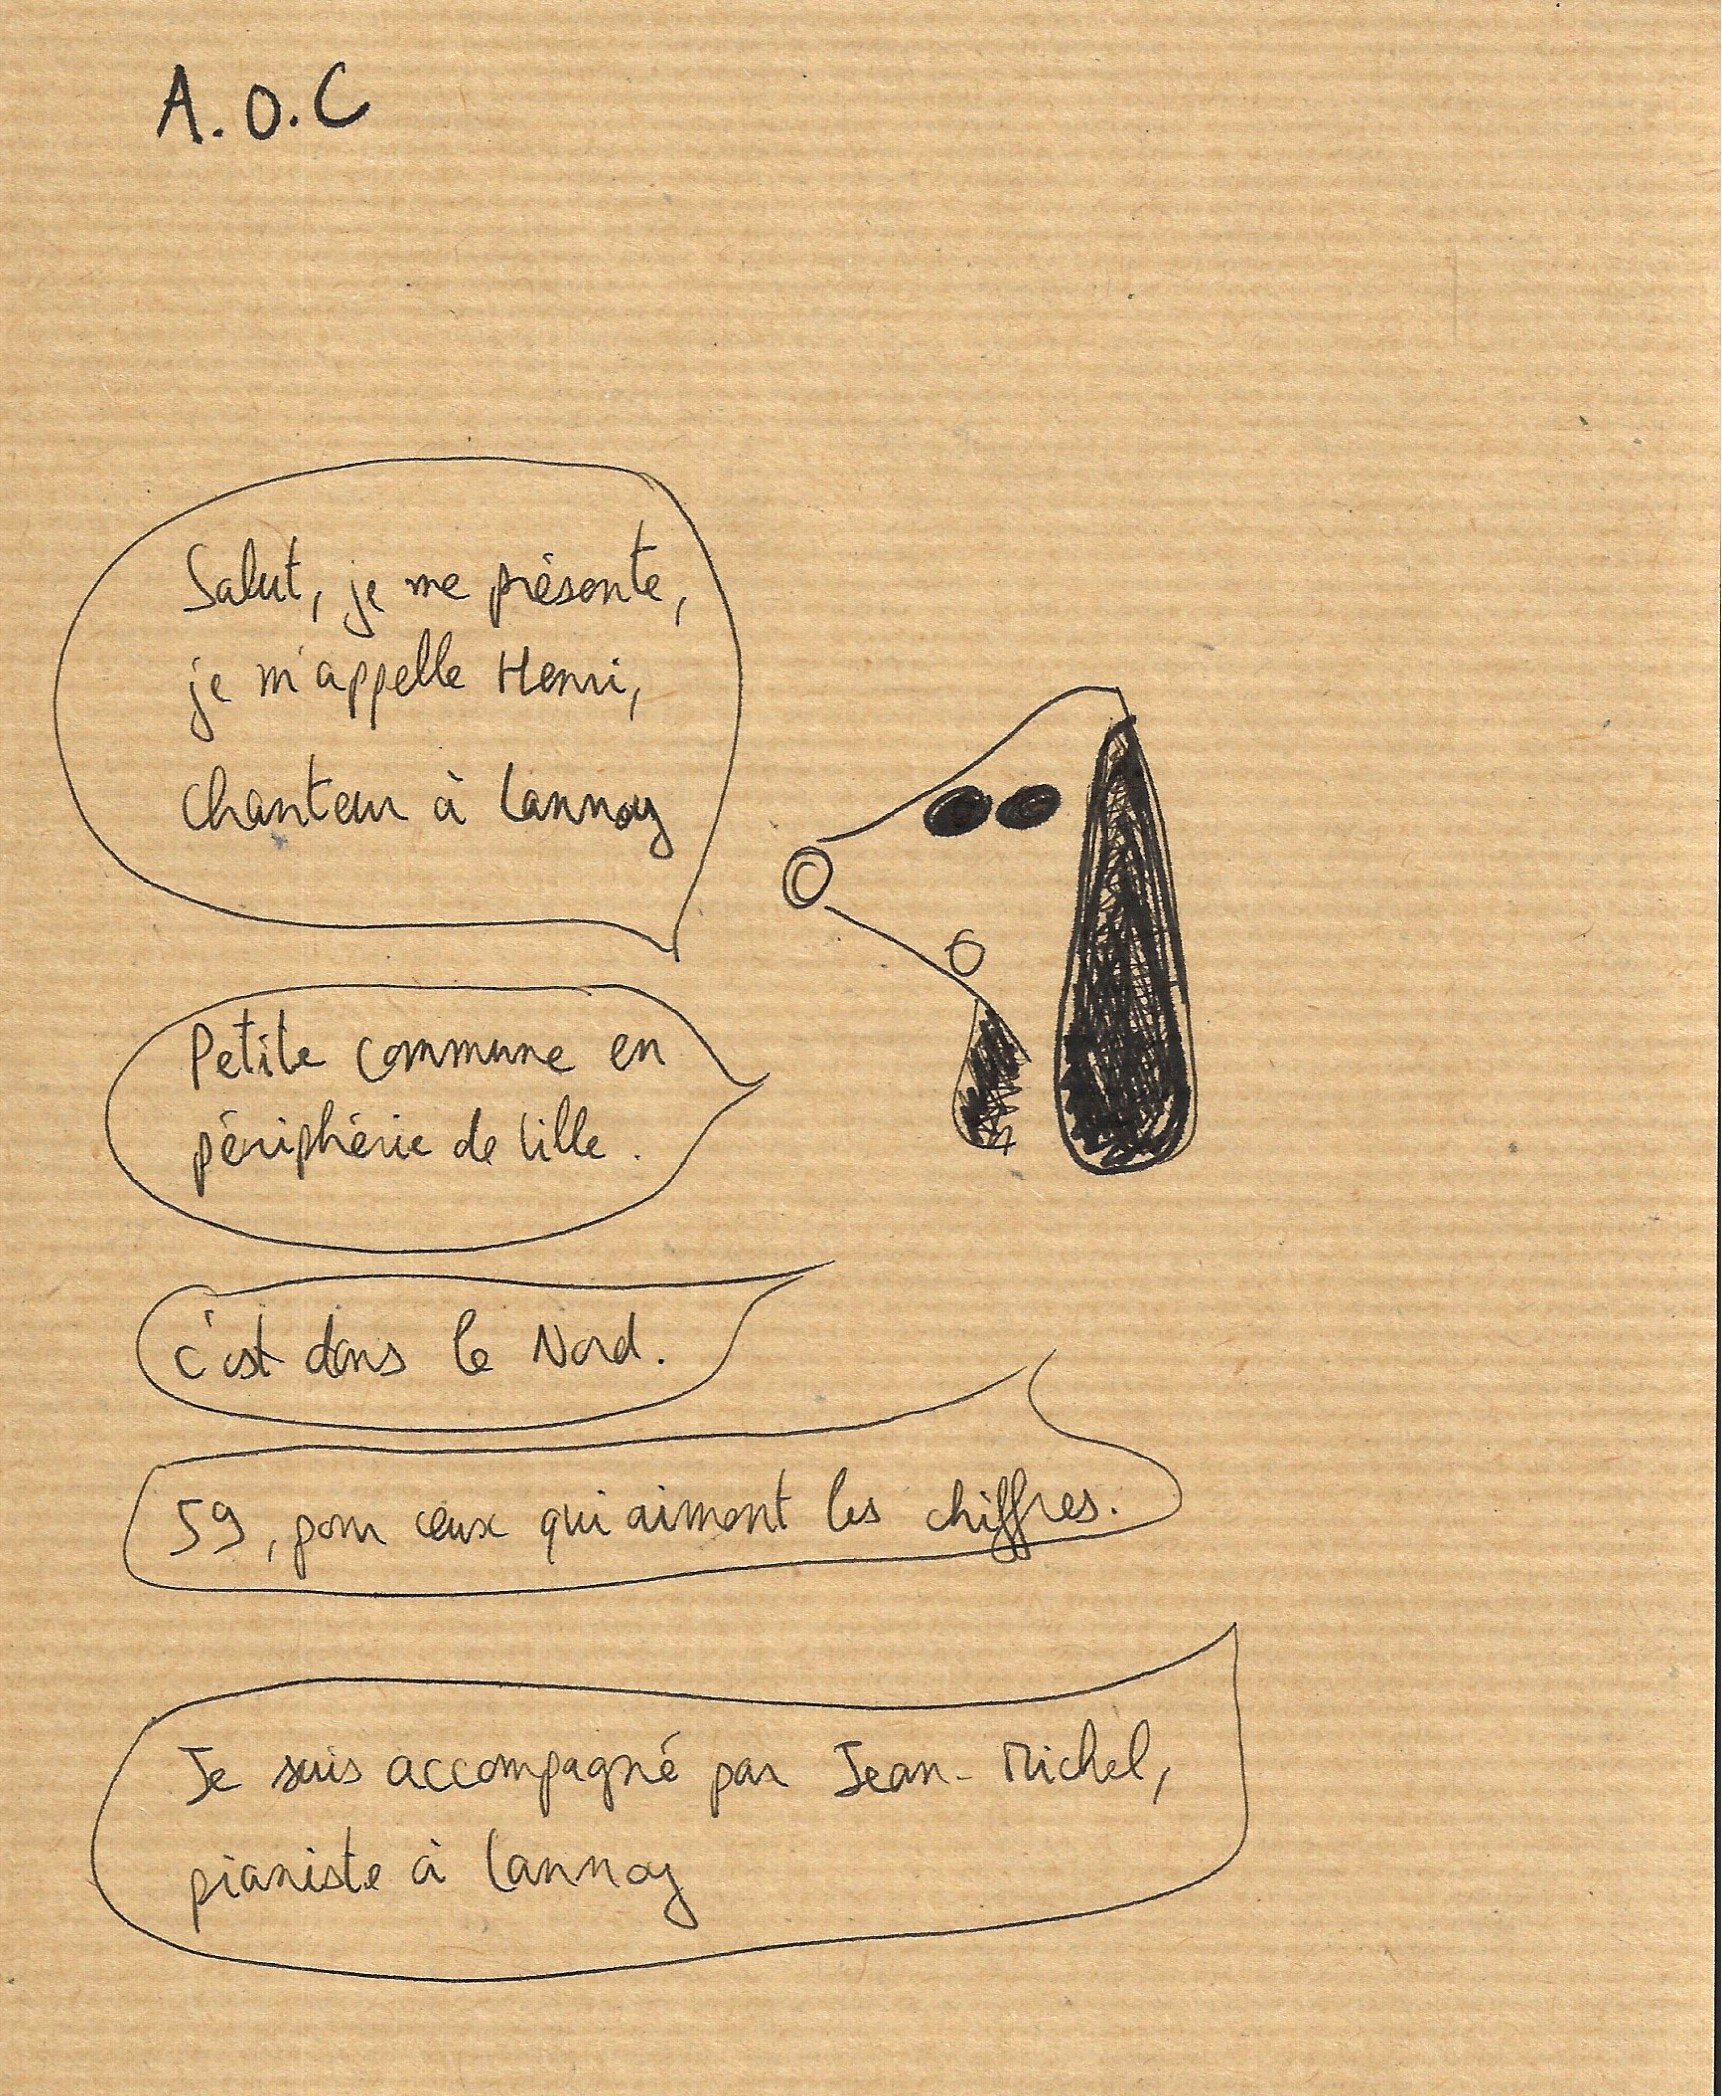 A.O.C
Salut, je me présente,
je m'appelle Henri,
chanteur à Lannoy
Petite commune en
périphérie de Lille.
c'est dans le Nord.
59, pour ceux qui aiment les chiffres.
Je suis accompagné par Jean-Michel,
pianiste à Lannoy